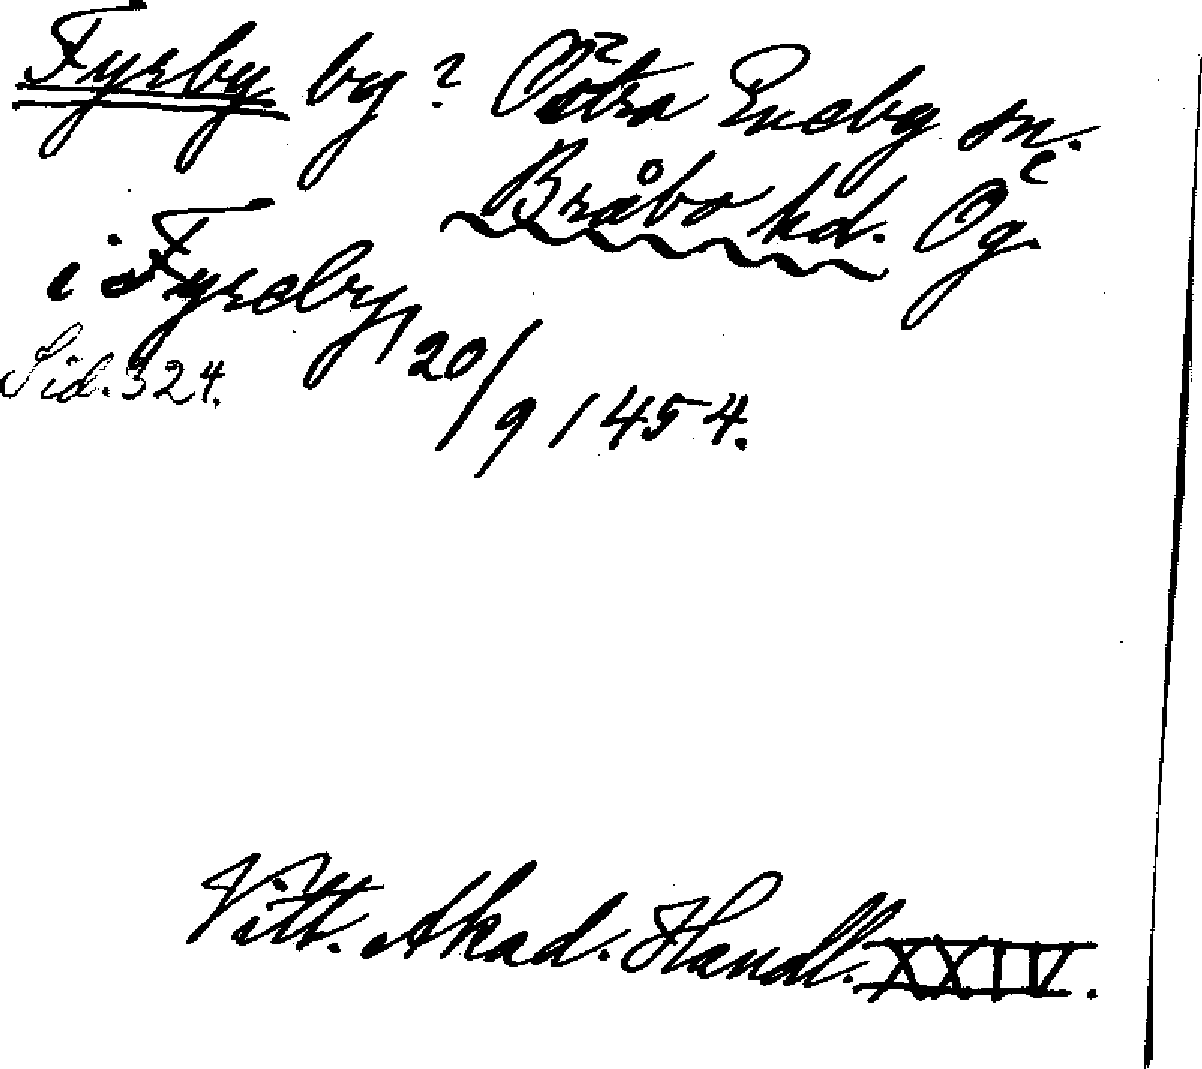 Fyrby by? Östra Eneby sn;
Bråbo hd. Ög.
i Fyreby, 20/9 1454.
Sid. 324.
Vitt. Akad. Handl. XXIV.